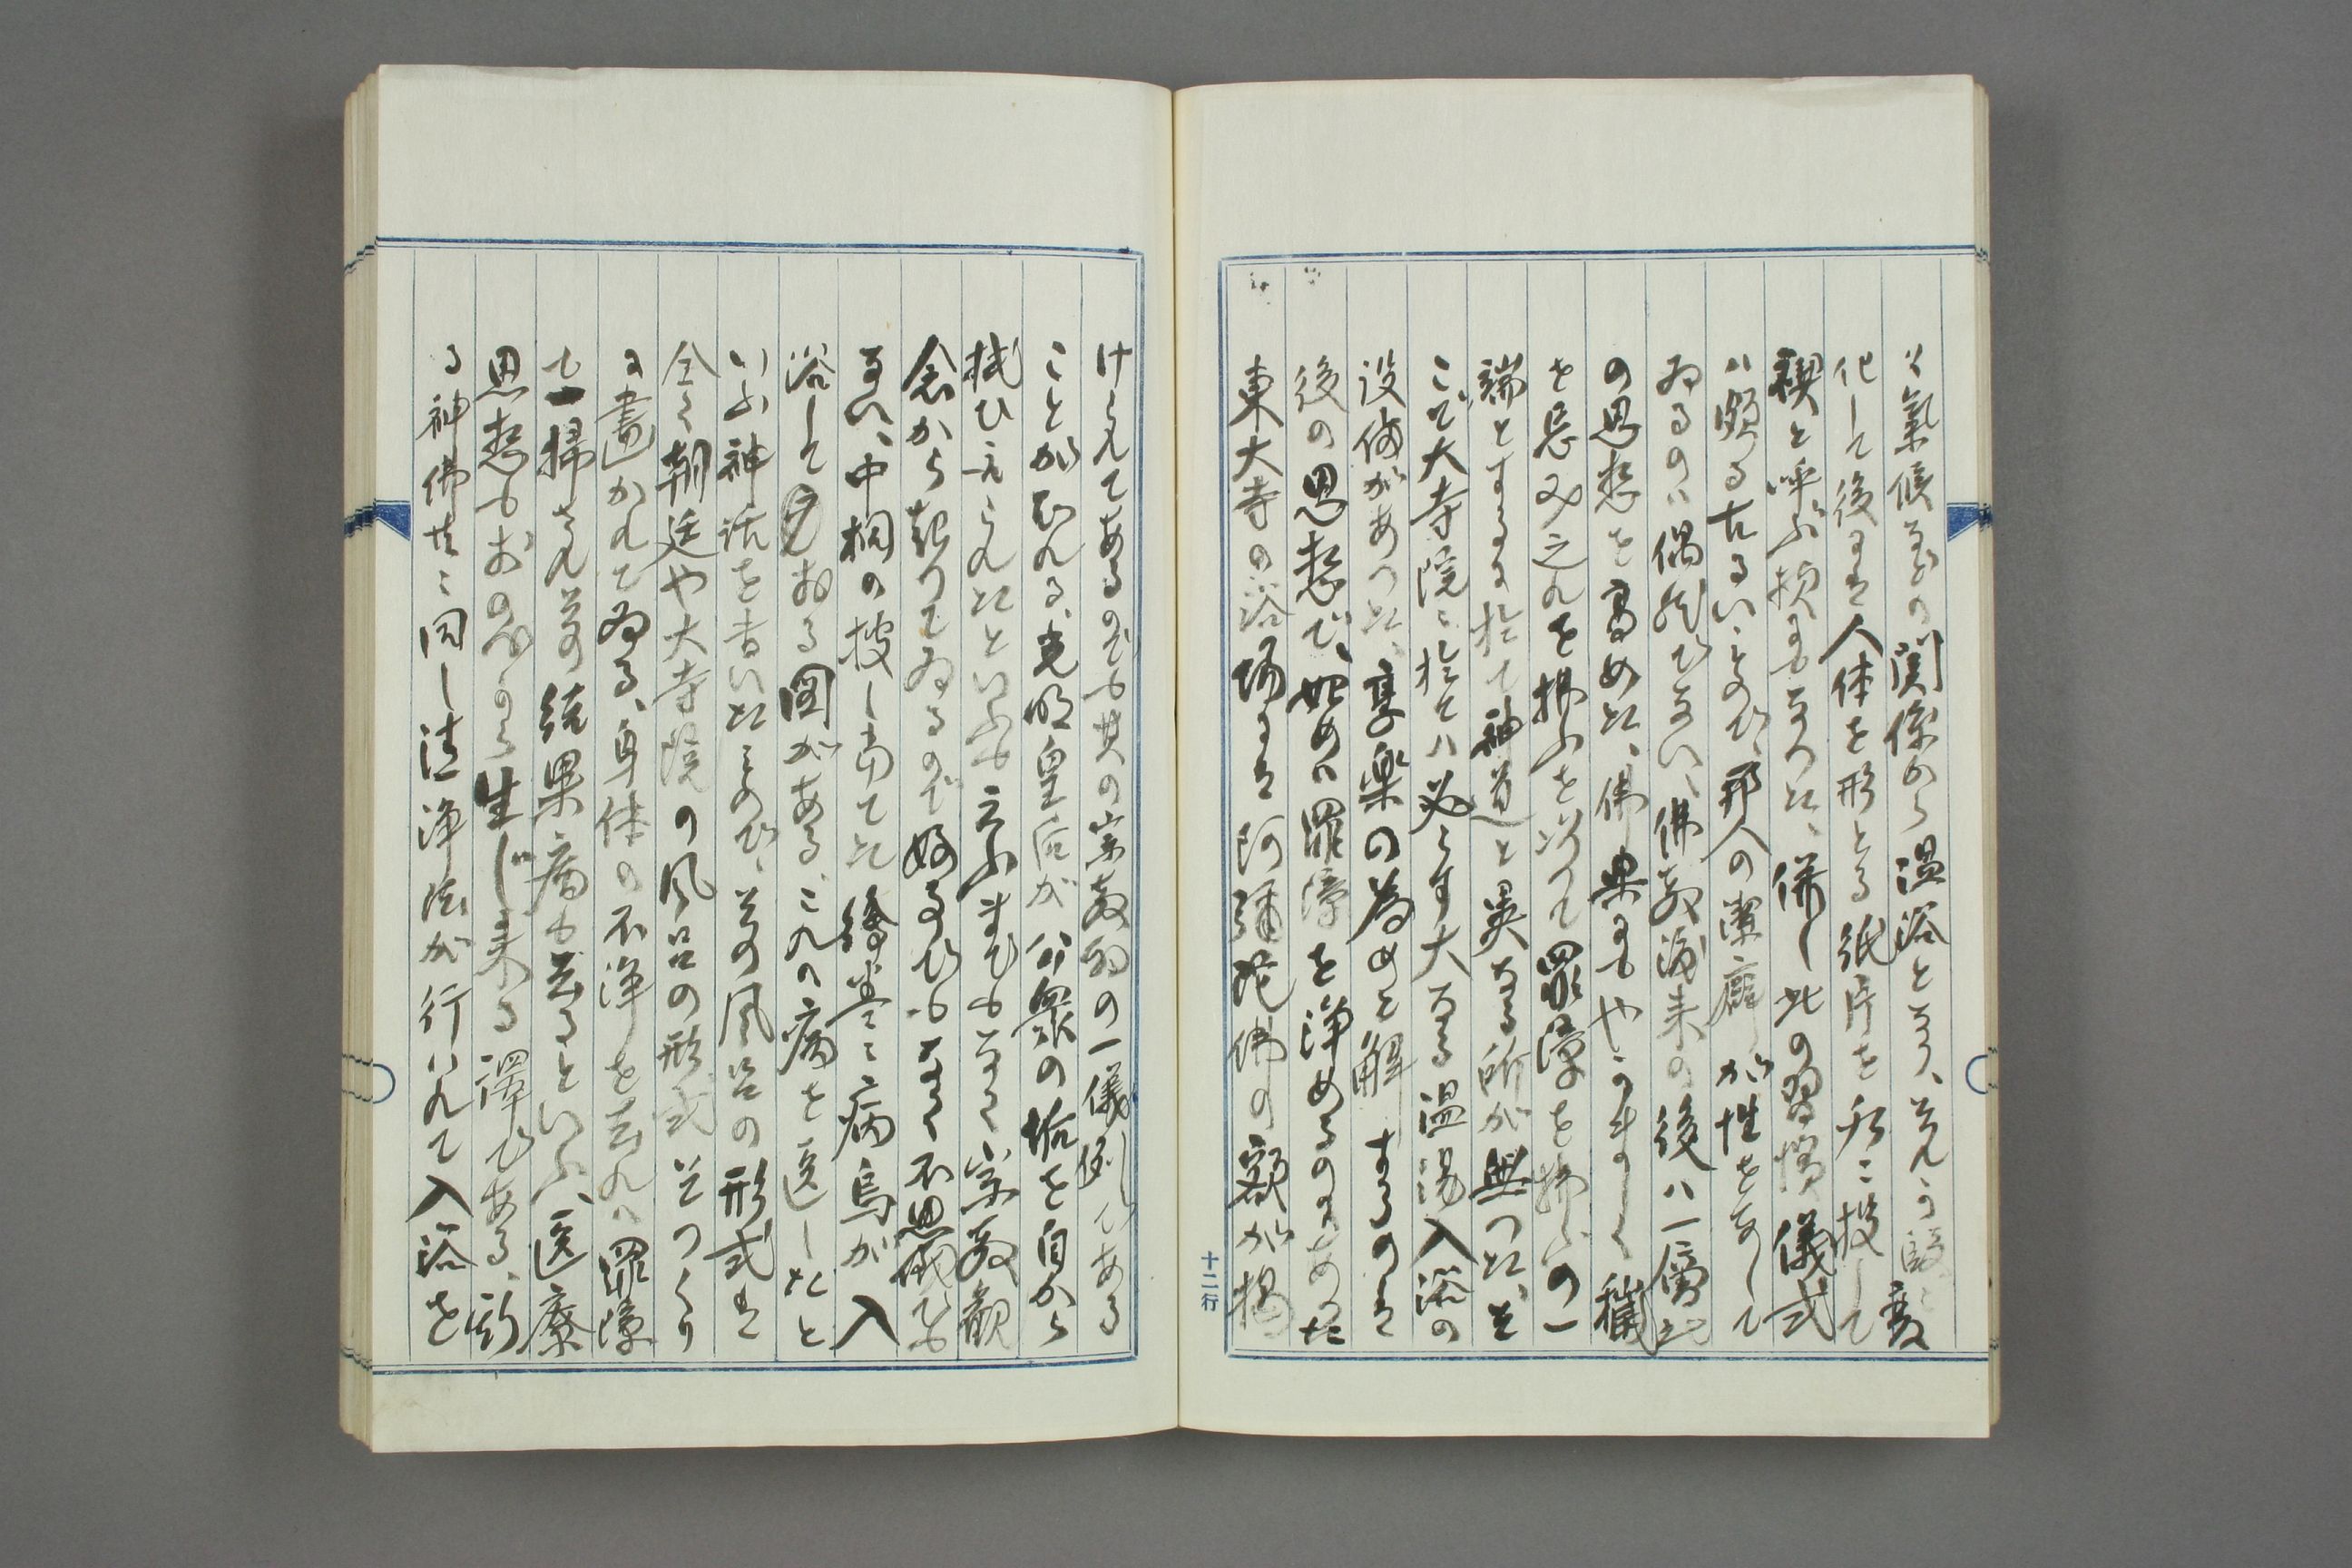 は氣候などの関係から温浴となり、それが愈々変
化して後には人体を形とる紙片を水に投して
禊と呼ぶ様にもなつた、併し此の習慣儀式
ハ頗る古るいことので、邦人の潔癖が性をなして
ゐるのハ偶然でない、佛教渡来の後ハ一層此
の思想を高めた、佛典にもやかましく穢
を忌み之れを拂ふを以つて罪障を拂ふの一
端とするに於て神道と異なる所が無つた、そ
こで大寺院に於てハ必らず大なる温湯入浴の
設備があつた、享楽の為めと解するのは
後の思想で、始めハ罪障を浄めるのであつた
東大寺の浴場には阿彌陀佛の額が掲
十二行
けられてあるのでも其の宗教的の一儀例である
ことが知れる、光明皇后が公衆の垢を自から
拭ひ玉られたといふも云ふまでもなく宗教観
念から起つてゐるので好事でもなく不思儀でも
ない、中桐の捜し当てた繪巻に病鳥が入
浴して居る図がある、これハ病を医したと
いふ神話を書いたもので、其の風呂の形式は
全く朝廷や大寺院の風呂の形式そつくり
に畫かれてゐる、身体の不浄を去れハ罪障
も一掃され其の結果病も去るといふ、医療
思想もおのづから生じ来る譯である、斯
る神佛共に同し清浄法が行ハれて入浴を